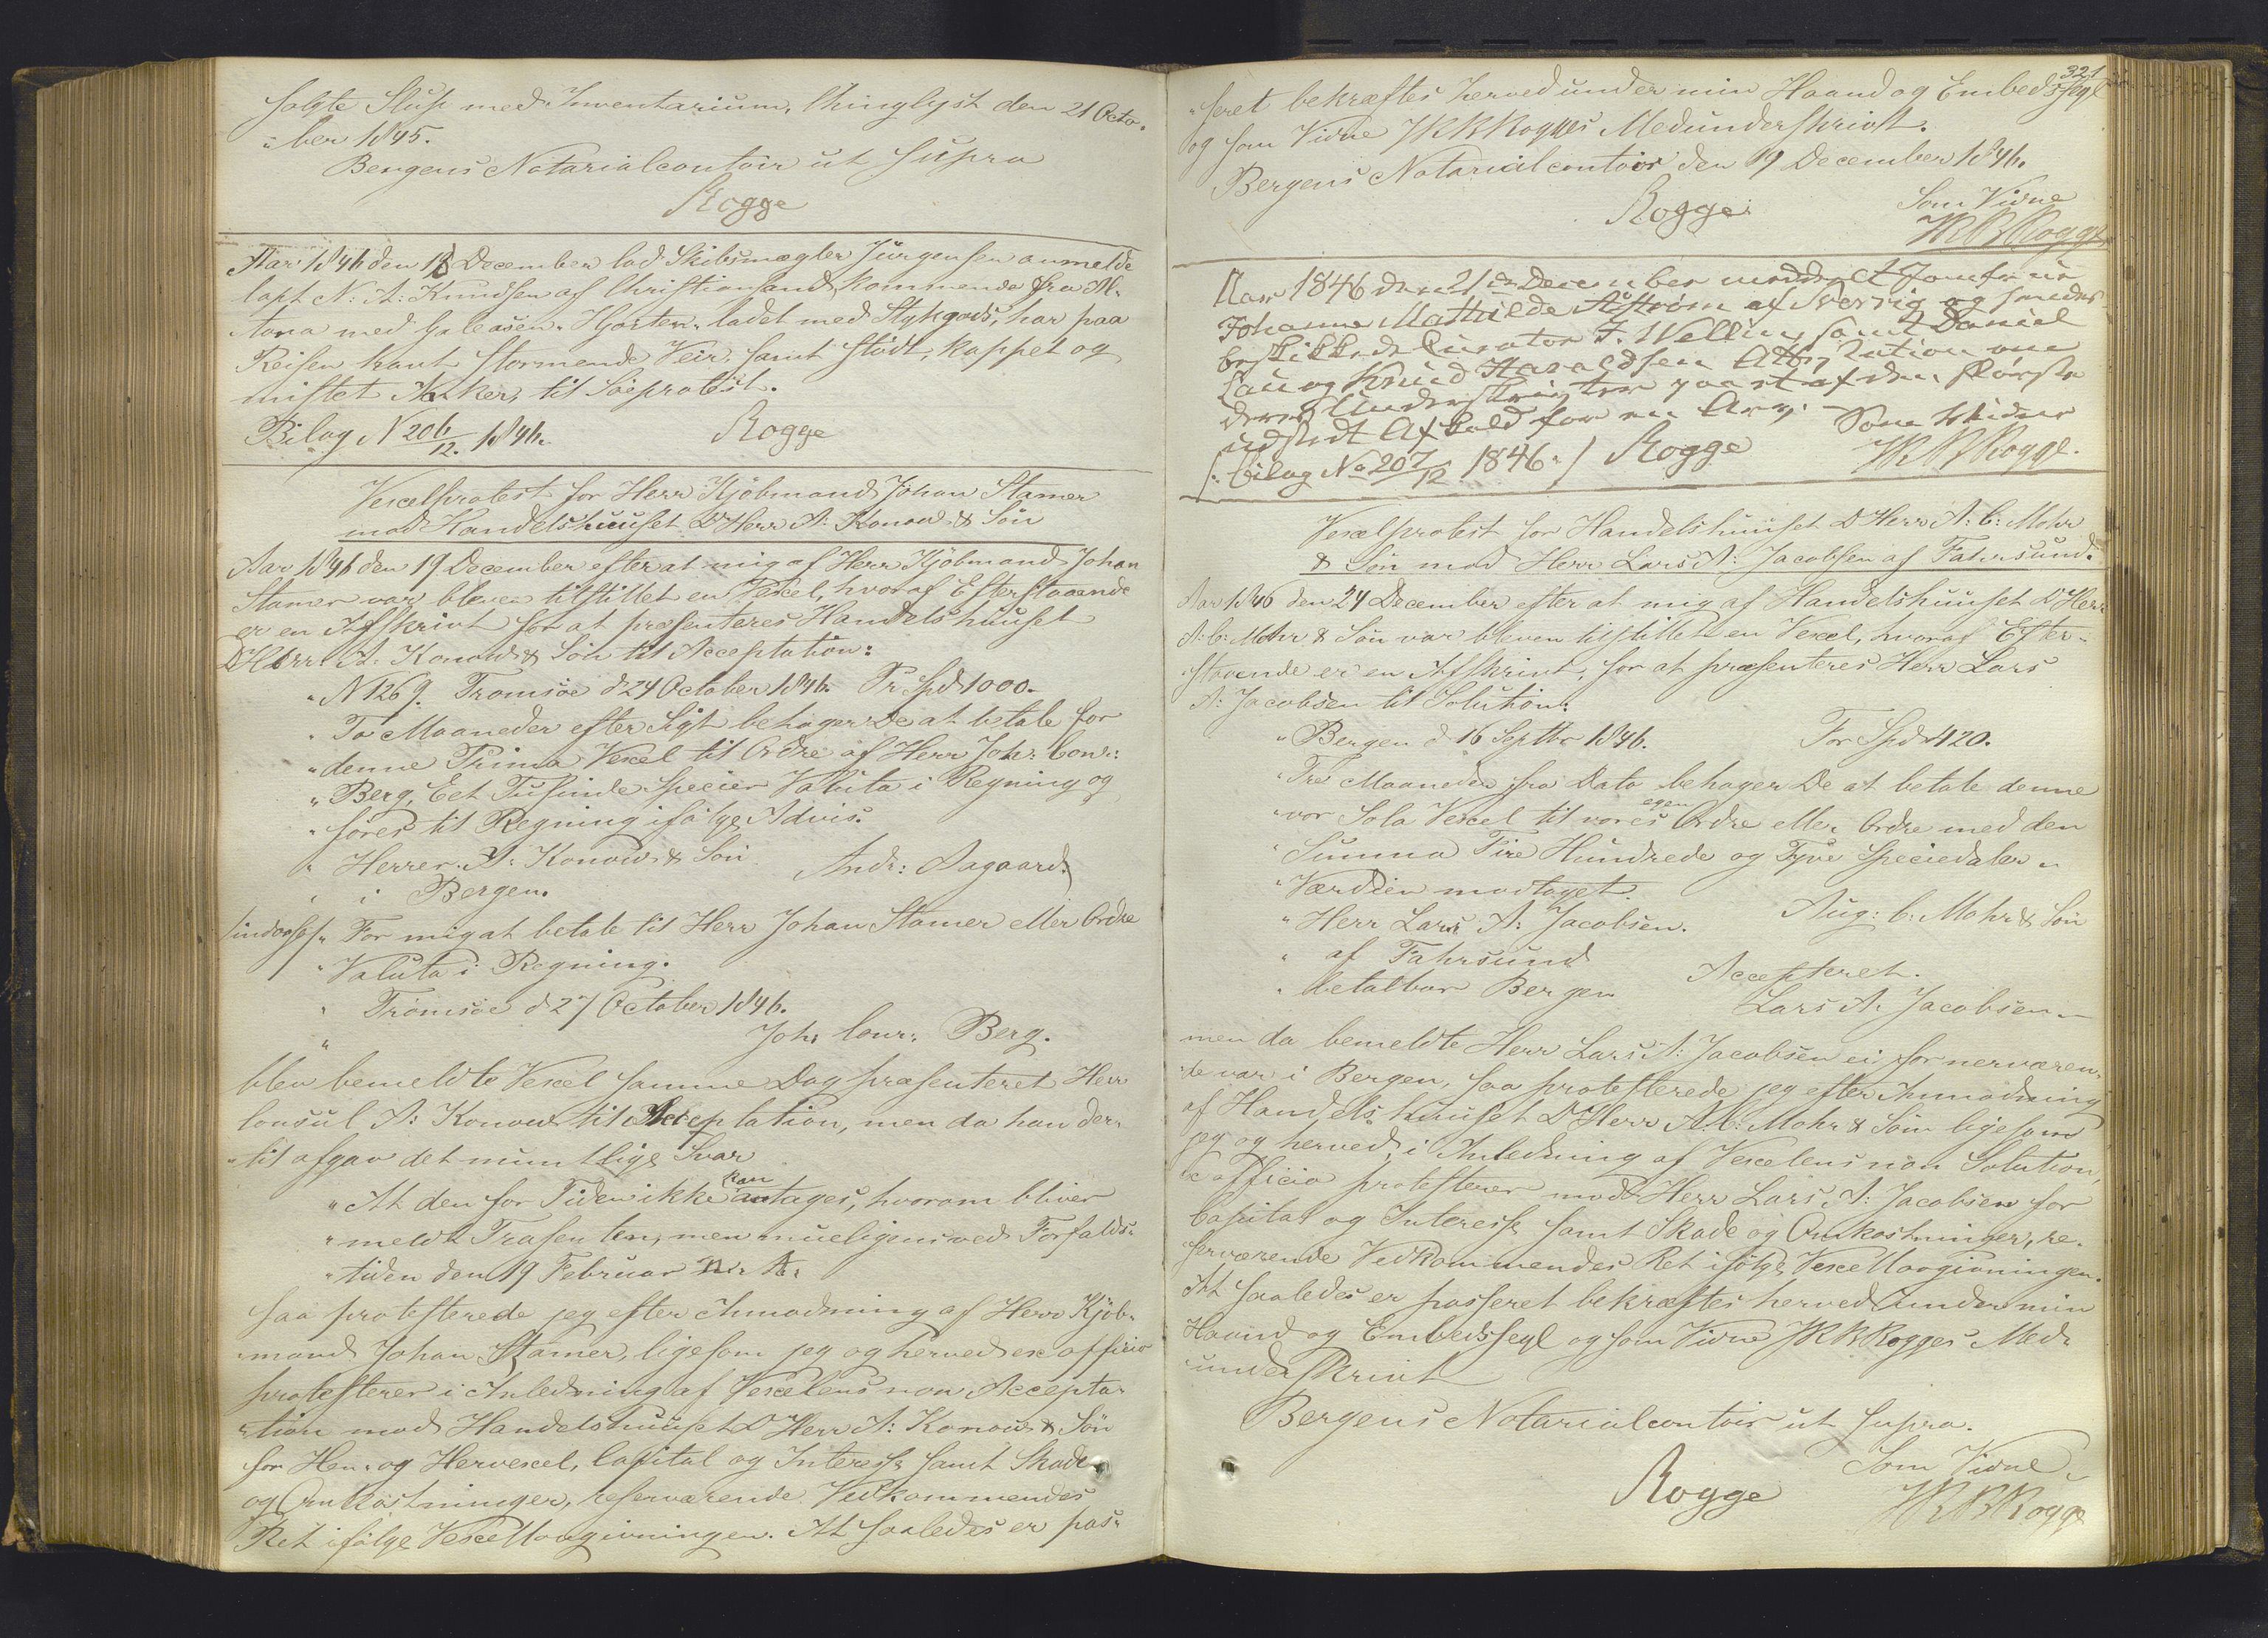 solgte Slup med Inventarium, thinglyst den 21 Octo-
"ber 1845.
Bergens Notarialcontoir ut supra
Rogge
Aar 1846 den 18 December lod Skibsmægler Jürgensen anmelde
Capt N: A: Knudsen af Christiansand, kommende fra Al-
tona med Galeasen "Hjorten" ladet med Stykgods, har paa
Reisen havt stormende Veir, samt stødt, kappet og
mistet Anker, til Søeprotest.
Bilag N 206/12. 1846. Rogge
Vexelprotest for Herr Kjøbmand Johan Stamer
mod Handelshuuset D'Herr A: Konow & Søn
Aar 1846 den 19 December efter at mig af Herr Kjøbmand Johan
Stamer var bleven tilstillet en Vexel, hvoraf Efterstaaende
er en Afskrivt for at præsenteres Handelshuuset
D'Herr A: Konow & Søn til Acceptation:
"N 1269. Tromsøe d 24 October 1846. Pr Spd 1000.
"To Maaneder efter Sigt behager De at betale for
"denne Prima Vexel til Ordre af Herr Joh: Conr:
"Berg, Eet Tusinde Species Valuta i Regning og
"føres til Regning ifølge Advis.
" Herrer A: Konow & Søn Andr: Aagaard.
" i Bergen.
/indorss/ " For mig at betale til Herr Johan Stamer eller Ordre
"Valuta i Regning.
" Tromsøe d 27 October 1846.
" Joh: Conr: Berg.
blev bemeldte Vexel samme Dag præsenteret Herr
Consul A: Konow til Acceptation, men da han der-
"til afgav det mundtlige Svar
"At den for Tiden ikke kan antages, hvorom bliver
"meldt Trasenten, men mueligens ved Forfalds-
"tiden den 19 Februar n: A:
saa protesterede jeg efter Anmodning af Herr Kjøb-
"mand Johan Stamer, ligesom jeg og herved ex officio
protesterer i Anledning af Vexelens non Accepta-
"tion mod Handelshuuset D'Herr A: Konow & Søn
for Hen- og Hervexel, Capital og Interesse samt Skade
og Omkostninger, reserverende Vedkommendes
Ret ifølge Vexellovgivningen. At saaledes er pas-
321
"seret bekræftes herved under min Haand og Embedssegl
og som Vidne JKBRogges Medunderskrivt.
Bergens Notarialcontoir den 19 December 1846.
Rogge Som Vidne
JKBRogge
Aar 1846 den 21de December meddeelt Jomfrue
Johanne Mathilde Åström af Sverrig og hendes
beskikkede Curator F. Wellin, samt Daniel
Lau og Knud Haraldsen Attestation om
deres Underskrivter paa et af den første
udstedt Afkald for en Arv.
/: bilag No 207/12 1846. / Rogge Som Vidne
JKBRogge.
Vexelprotest for Handelshuuset D'Herr A: C: Mohr
& Søn mod Herr Lars A: Jacobsen af Fahrsund.
Aar 1846 den 24 December efter at mig af Handelshuuset D'Herr
A: C: Mohr & Søn var bleven tilstillet en Vexel, hvoraf Efter-
"staaende er en Afskrivt, for at præsenteres Herr Lars
A: Jacobsen til Solution:
"Bergen d 16 Septbr 1846. For Spd 420.
"Tre Maaneder fra Dato behager De at betale denne
"vor Sola Vexel til vores egen Ordre eller Ordre med den
"Summa Fire Hundrede og Tyve Speciedaler "
"Værdien modtaget.
" Herr Lars A: Jacobsen. Aug: C: Mohr & Søn
" af Fahrsund
" betalbar Bergen Accepteret.
Lars A: Jacobsen "
men da bemeldte Herr Lars A: Jacobsen ei for nerværen-
"de var i Bergen, saa protesterede jeg efter Anmodning
af Handelshuuset D'Herr A: C: Mohr & Søn ligesom
jeg og herved, i Anledning af Vexelens non Solution,
ex officio protesterer mod Herr Lars A: Jacobsen for
Capital og Interesse samt Skade og Omkostninger, re-
"serverende Vedkommendes Ret ifølge Vexellovgivningen.
At saaledes er passeret bekræftes herved under min
Haand og Embedssegl og som Vidne JKBRogges Med-
"underskrivt
Bergens Notarialcontoir ut supra.
Rogge Som Vidne
JKBRogge